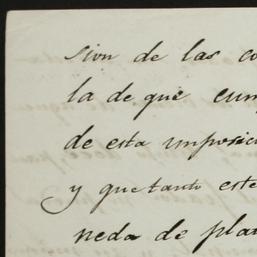 sion de las co
la de que cum
de esta imposici
y que tanto este
neda de plat